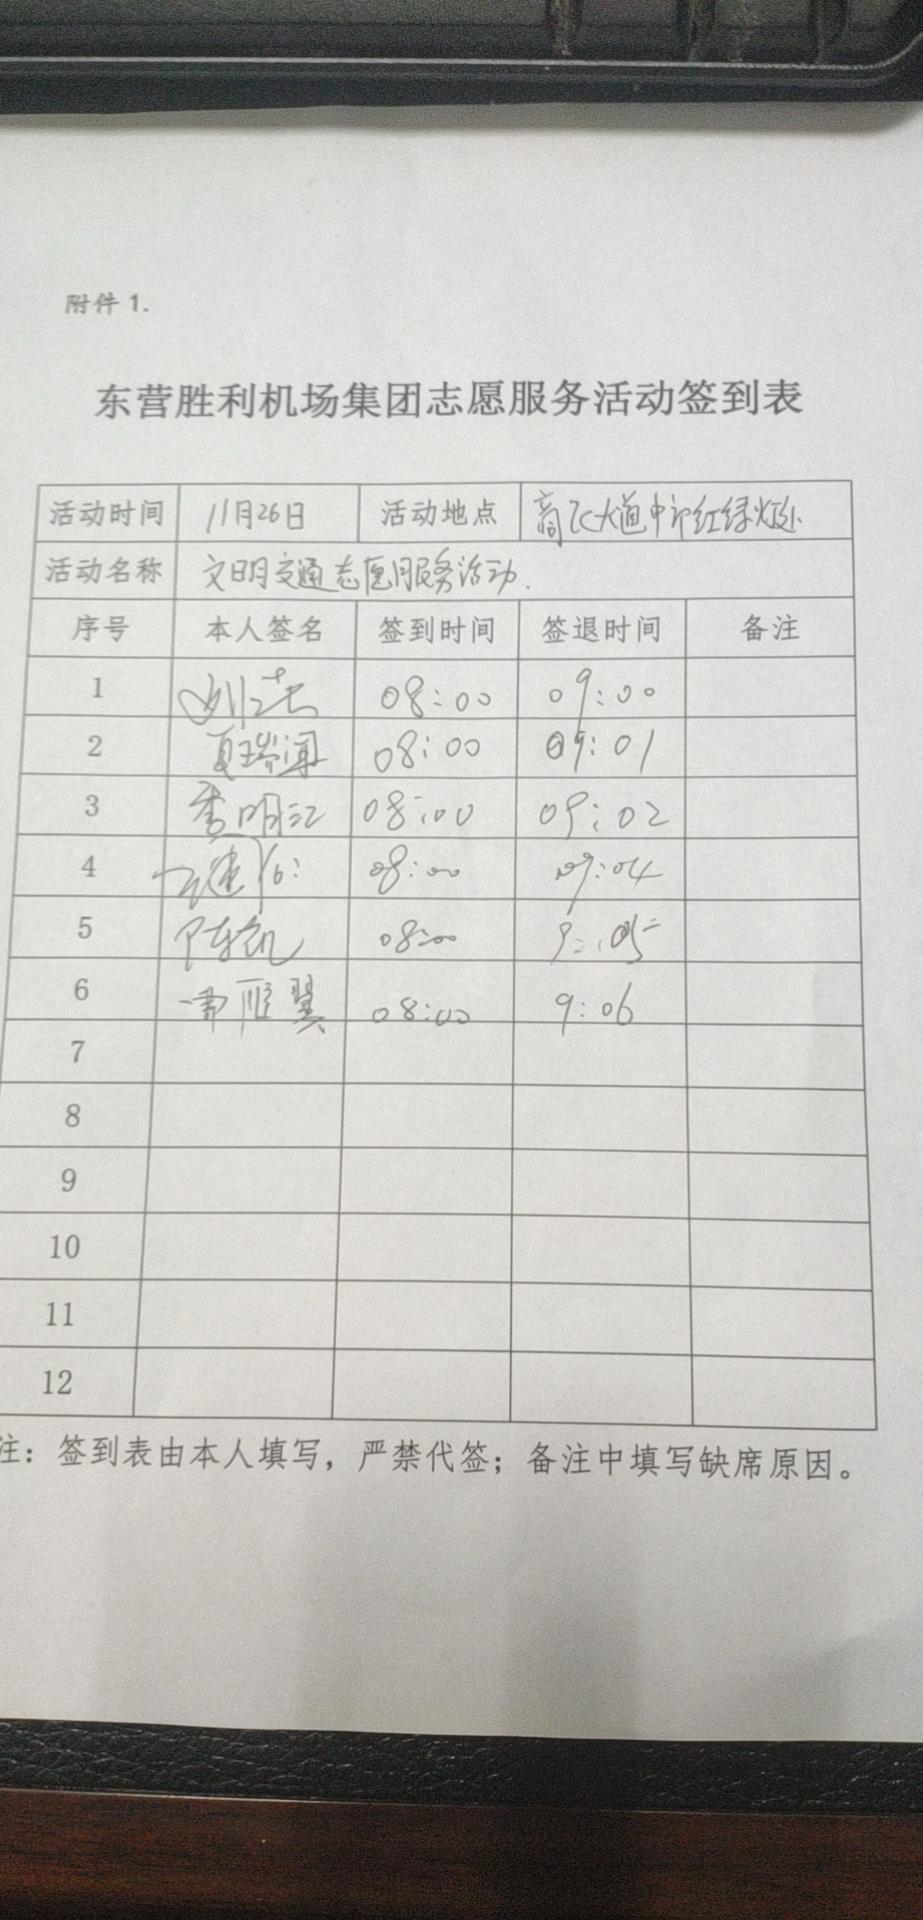 附件 1.
东营胜利机场集团志愿服务活动签到表
活动时间 11月26日 活动地点 商飞大道中 红绿灯处
活动名称 文明交通志愿服务活动.
序号 本人签名 签到时间 签退时间 备注
1 08:00 09:00
2 夏瑞闻 08:00 09:01
3 李明江 08:00 09:02
4 08:00 09:04
5 陈凯 08:00 9:05
6 雁翼 08:00 9:06
7
8
9
10
11
12
注：签到表由本人填写，严禁代签；备注中填写缺席原因。